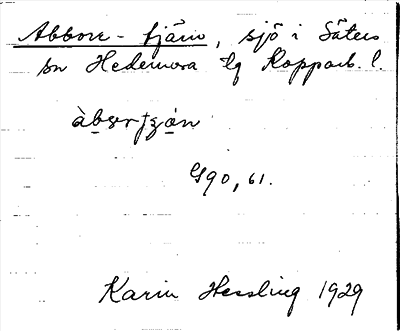 Abborr-tjärn, sjö i Säters
sn Hedemora tg Kopparb. l.
àbɘrtʃɘ̣n
G90, 61.
Karin Hessling 1929